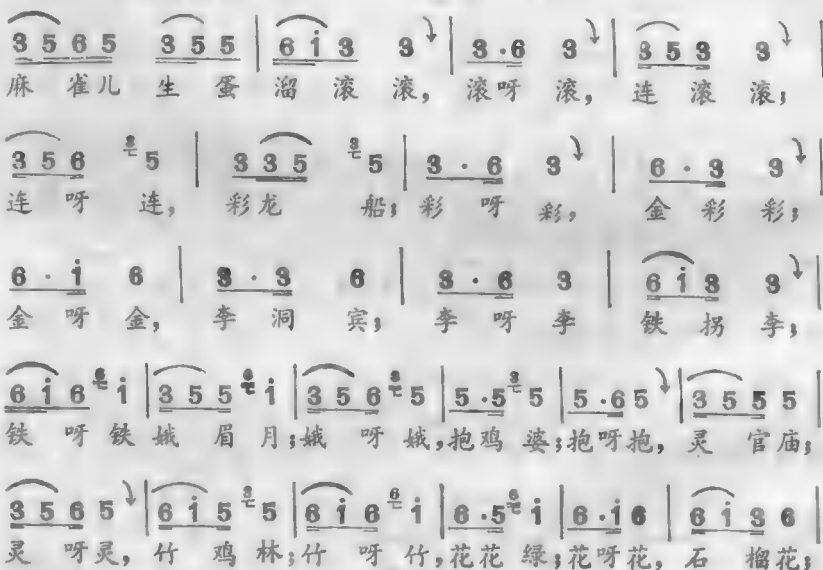 3 5 6 5 3 5 5 | 6 i 3 3 | 3·6 3 | 3 5 3 3 |
麻雀儿生蛋溜滚滚，滚呀滚，连滚滚；
3 5 6 3 5 | 3 3 5 3 5 | 3·6 3 | 6·3 3 |
连呀连，彩龙船；彩呀彩，金彩彩；
6·i 6 | 3·3 6 | 3·6 3 | 6 i 3 3 |
金呀金，李洞宾；李呀李铁拐李；
6 i 6 6 i | 3 5 5 6 i | 3 5 6 3 5 | 5·5 3 5 | 5·6 5 | 3 5 5 5 |
铁呀铁娥眉月；娥呀娥，抱鸡婆；抱呀抱，灵官庙；
3 5 6 5 | 6 i 5 3 5 | 6 i 6 6 i | 6·5 6 i | 6·i 6 | 6 i 3 6 |
灵呀灵，竹鸡林；竹呀竹，花花绿；花呀花，石榴花；